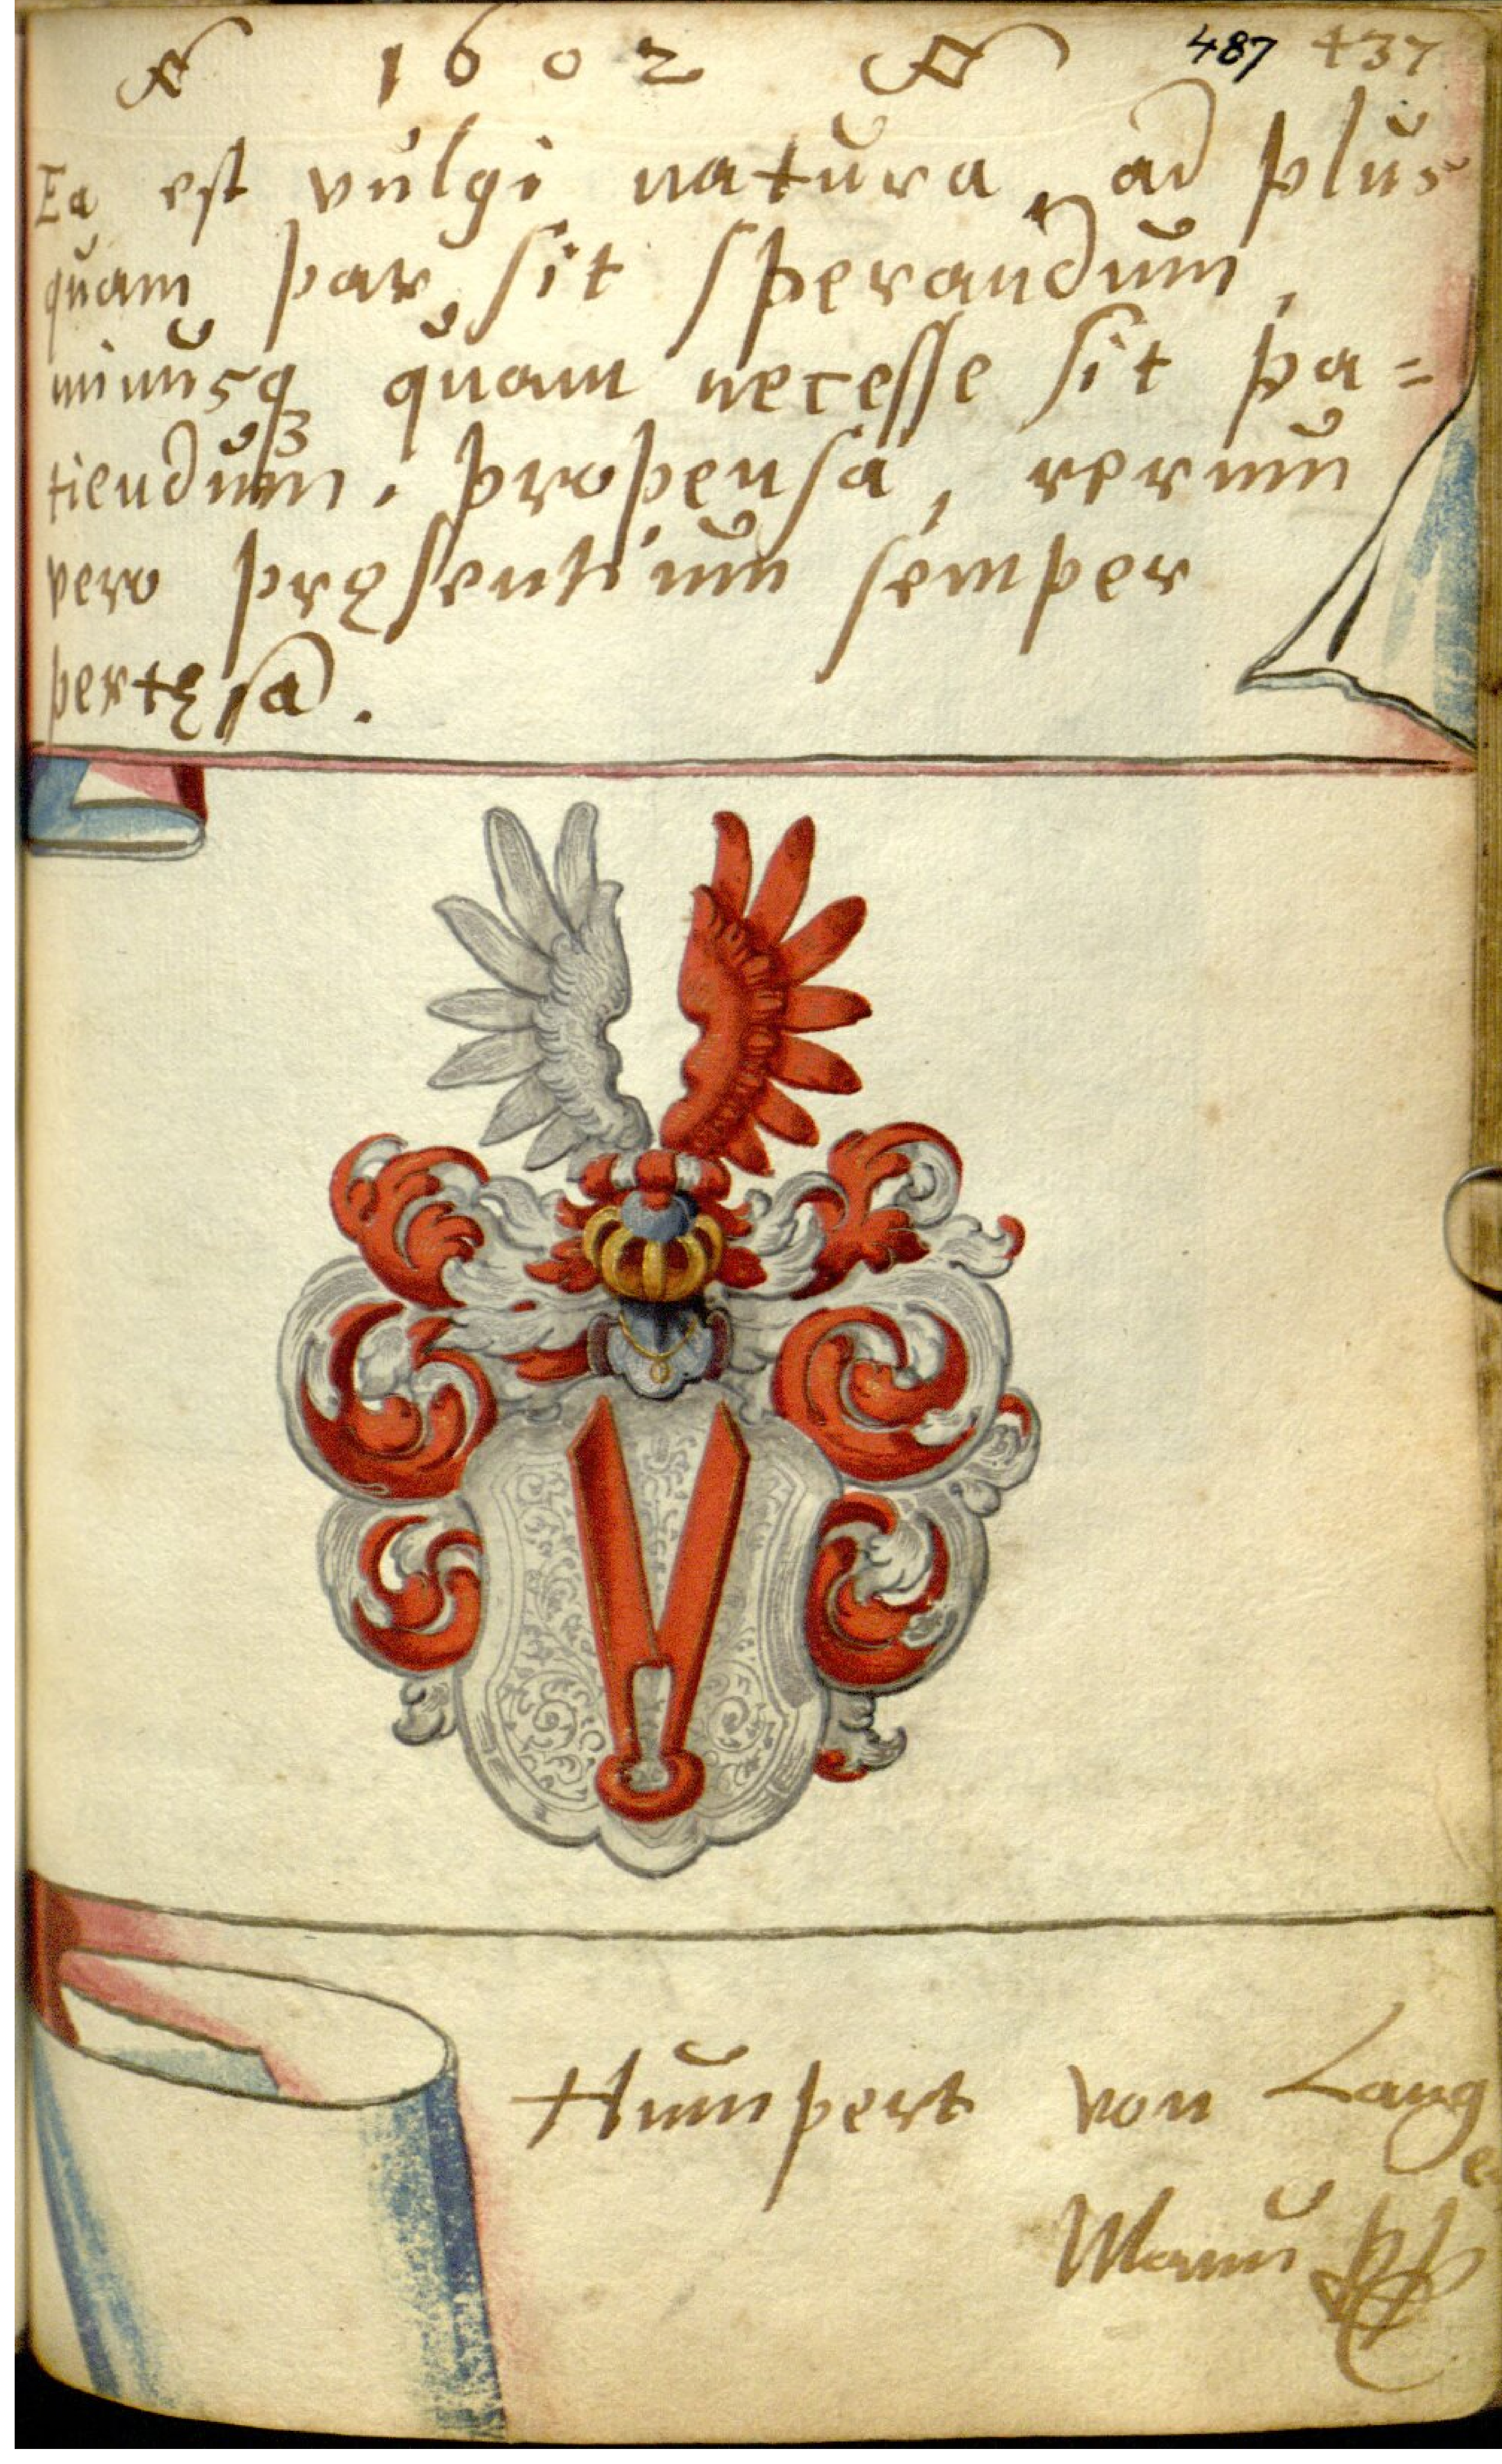 1602 487 437
Ea est vulgi natura, ad plus
quam par sit sperandum,
minusqꝫ quam necesse sit pa=
tiendum, propensa, rerum
vero pręsentium semper
pertęsa.
Humpert von Lange
Manu